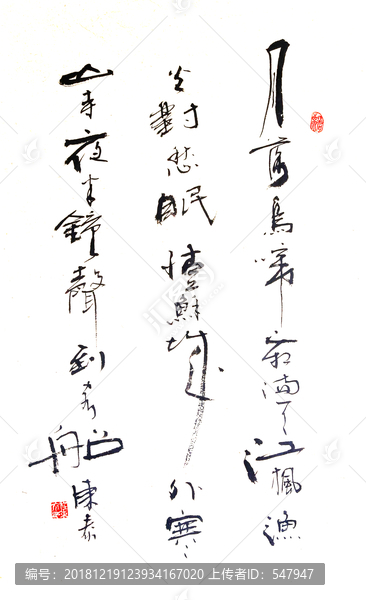 月落烏啼霜滿天江楓漁
火對愁眠姑蘇城外寒
山寺夜半鐘聲到客船
陳泰
编号：20181219123934167020 上传者ID：547947